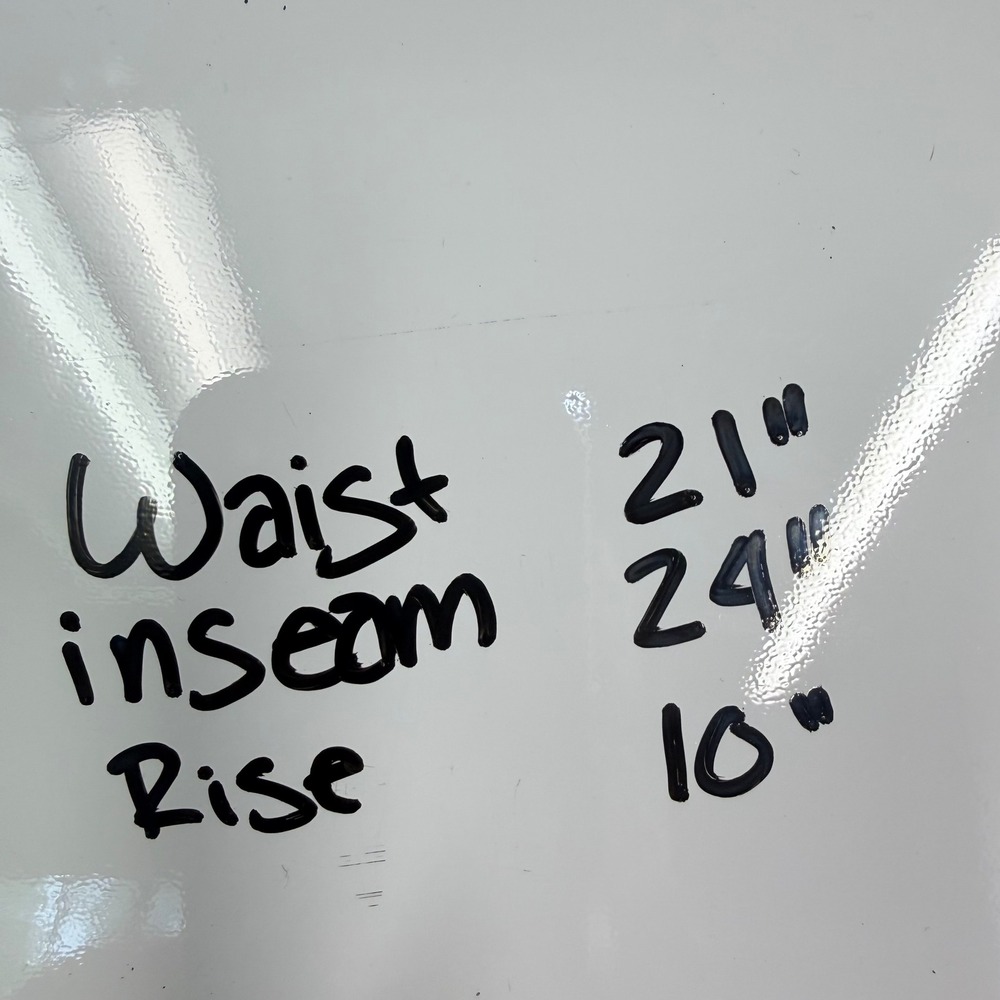 Waist 21"
inseam 24"
Rise 10"